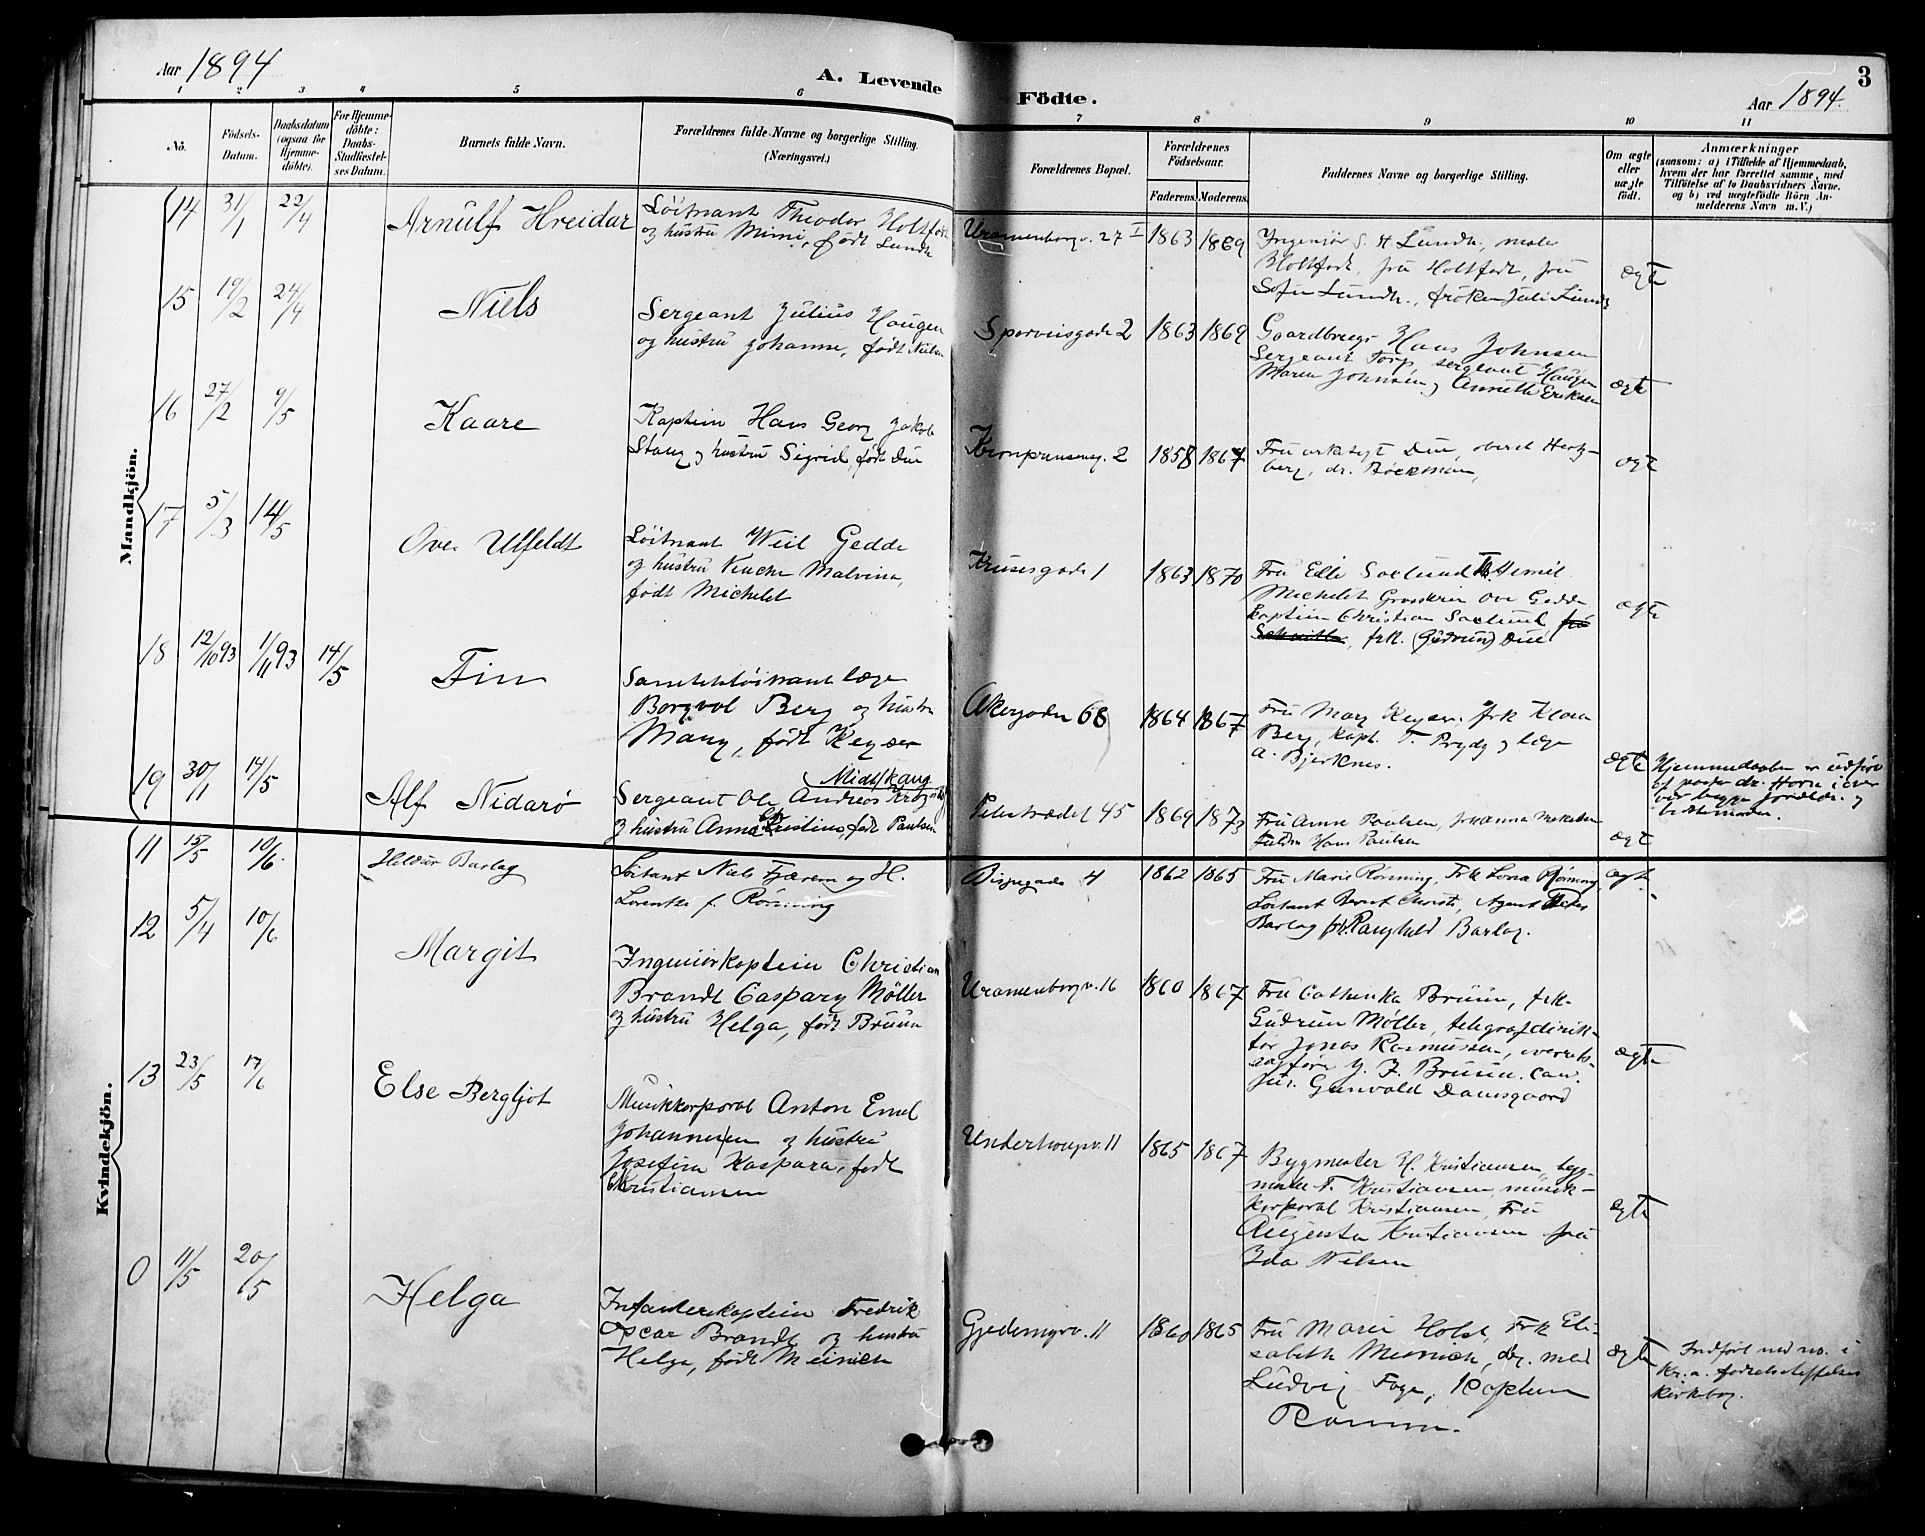 Aar 1894
A. Levende
Födte.
Aar 1894.
3
1 2 3 4 5 6 7 8 9 10 11
No.
Födsels-
Datum.
Daabsdatum
(ogsaa for
Hjemme-
døbte).
For Hjemme-
døbte:
Daabs-
Stadfæstel-
ses Datum.
Barnets fulde Navn.
Forældrenes fulde Navne og borgerlige Stilling.
(Næringsvei.)
Forældrenes Bopæl.
Forældrenes
Födselsaar.
Faderens.
Moderens.
Faddernes Navne og borgerlige Stilling.
Om ægte
eller
uægte
født.
Anmærkninger
(saasom: a) i Tilfælde af Hjemmedaab,
hvem der har forrettet samme, med
Tilføielse af to Daabsvidners Navne,
og b) ved uægtefödte Börn An-
melderens Navn m.V.)
Mandkjön.
14 31/1 22/4
Arnulf Hreidar
Löitnant Theodor Holtfodt
og hustru Mimi, født Lundh
Uranienborgv. 27 I
1863 1869
Ingeniör S. H. Lundh, maler
Holtfodt, fru Holtfodt, fru
Sofie Lundh, fröken Juli Lundh
ægte
15 19/2 24/4
Niels
Sergeant Julius Haugen
og hustru Johanne, født Nielsen
Sporveisgade 2
1863 1869
Gaardbruger Hans Johnsen
Sergeant Torp, sergeant Haugen
Maren Johnsen, Annette Eriksen
ægte
16 27/2 9/5
Kaare
Kaptein Hans Georg Jakob
Stang og hustru Sigrid, født Due
Kronprinsensg. 2
1858 1867
Fru arkitekt Due, oberst Hertz-
berg, dr. Böckman,
ægte
17 5/3 14/5
Ove Ulfeldt
Löitnant Weil Gedde
og hustru Vincke Malvina,
født Michelet
Krusesgade 1
1863 1870
Fru Elle Saelund
Michelet Grosserer Ove Gedde
Kaptein Christian Saelund fru
frk. (Gudrun) Due
ægte
18 12/10 93 1/11 93 14/5
Fin
Sanitetslöitnant læge
Borgvol Berg og hustru
Many, født Keyser
Akersgaden 68
1864 1867
Fru Mary Keyser. frk Klara
Berg, kapt. T. Prydz og læge
A. Bjerknes.
ægte
Hjemmedaaben er udført
af pastor dr. Horn i over-
vær begge forældr. og
bedstemoder.
19 30/1 14/5
Alf Nidarö
Midtskaug
Sergeant Ole Andreas
og hustru Anna Christine født Paulsen
Pilestrædet 45
1869 1873
Fru Anne Paulsen, Johanna Mikkelsen
Hans Paulsen
ægte
Kvindekjön.
11 15/5 10/6
Heldur Barlag
Löitant Niels Fjærem og H.
Lorentze f. Rönning
4
1862 1865
Fru Marie Rönning, Frk Lona Rönning,
Löitant Bernt Christi, Agent Peter
Barlag frk. Ranghild Barlag.
ægte
12 5/4 10/6
Margit
Ingeniörkaptein Christian
Brandt Caspary Möller
og hustru Helga, født Bruun
Uranienborgv. 16
1860 1867
Fru Cathinka Bruun, frk.
Gudrun Møller, telegrafdirek-
tör Jonas Rasmussen, overrets-
sagförer J. F. Bruun. Can.
jur. Gunvald Damsgaard
ægte
13 23/5 17/6
Else Bergljot
Musikkorporal Anton Emil
Johannesen og hustru
Josefina Kaspara, født
Kristiansen
Underhaugsv. 11
1865 1867
Bygmester H. Kristiansen, byg-
mester T. Kristiansen, musik-
korporal Kristiansen, Fru
Augusta Kristiansen fru
Ida Nilsen
ægte
0 11/5 20/5
Helga
Infanterikaptein Fredrik
Oscar Brandt og hustru
Helga, født Meinich
Gjedemyrv. 11
1860 1865
Fru Marie Holst, Frk Eli-
sabeth Meinich, dr. med
Ludvig Faye, Kaptein
Ramm.
ægte
Indført med no. i
Kr.a. fødselsstiftelses
kirkebog.